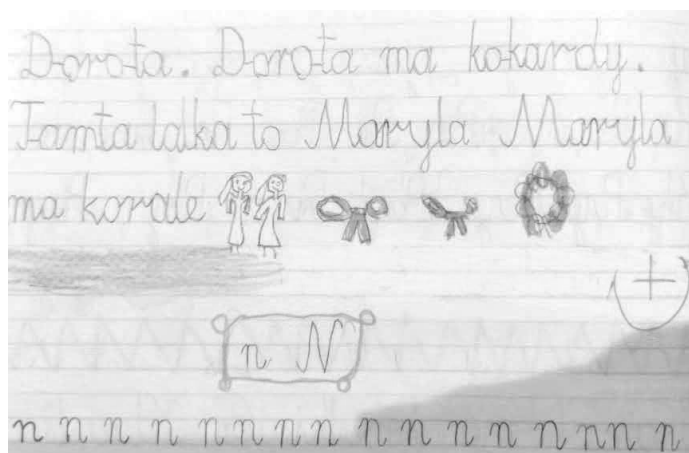 Dorota. Dorota ma kokardy.
Tamta lalka to Maryla Maryla
ma korale
+
n N
n n n n n n n n n n n n n nn n